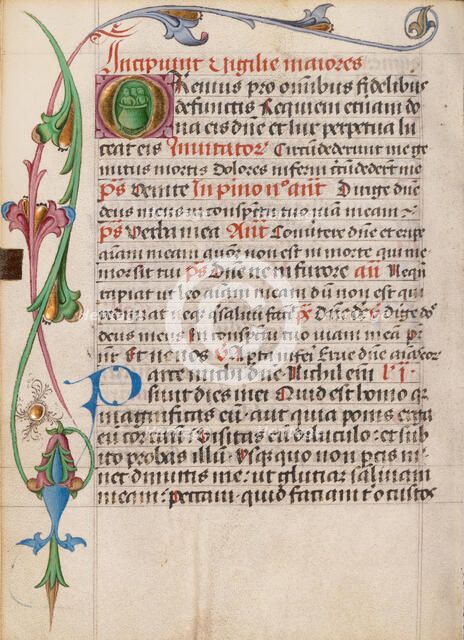 Incipiunt Vigilie maiores
Oremus pro omnibus fidelibus
defunctis Requiem eternam do
na eis dne et lux perpetua lu
ceat eis Invitator Circumdederunt me ge
mitus mortis Dolores inferni circumdederunt me
ps Venite In pi no ant Dirige dne
deus meus in conspectu tuo viam meam
ps Verba mea Ant Convertere dne et eripe
aiam meam quoniam non est in morte qui me
mor sit tui ps Dne ne in furore an Nequn
rapiat ut leo aiam meam dum non est qui
redimat neq qi salvu faciat
deus meus in conspectu tuo viam meam
Et ne nos A porta inferi Erue dne aias eor
Parce michi dne Nichil eni
sunt dies mei Quid est homo qr
magnificas eu aut quid ponis erga
eu cor tuum Visitas eu diluculo et sub
ito probas illu Usqr quo non pcis mi
nec dimittis me ut glutiar salivam
meam peccavi quid faciam t o custos